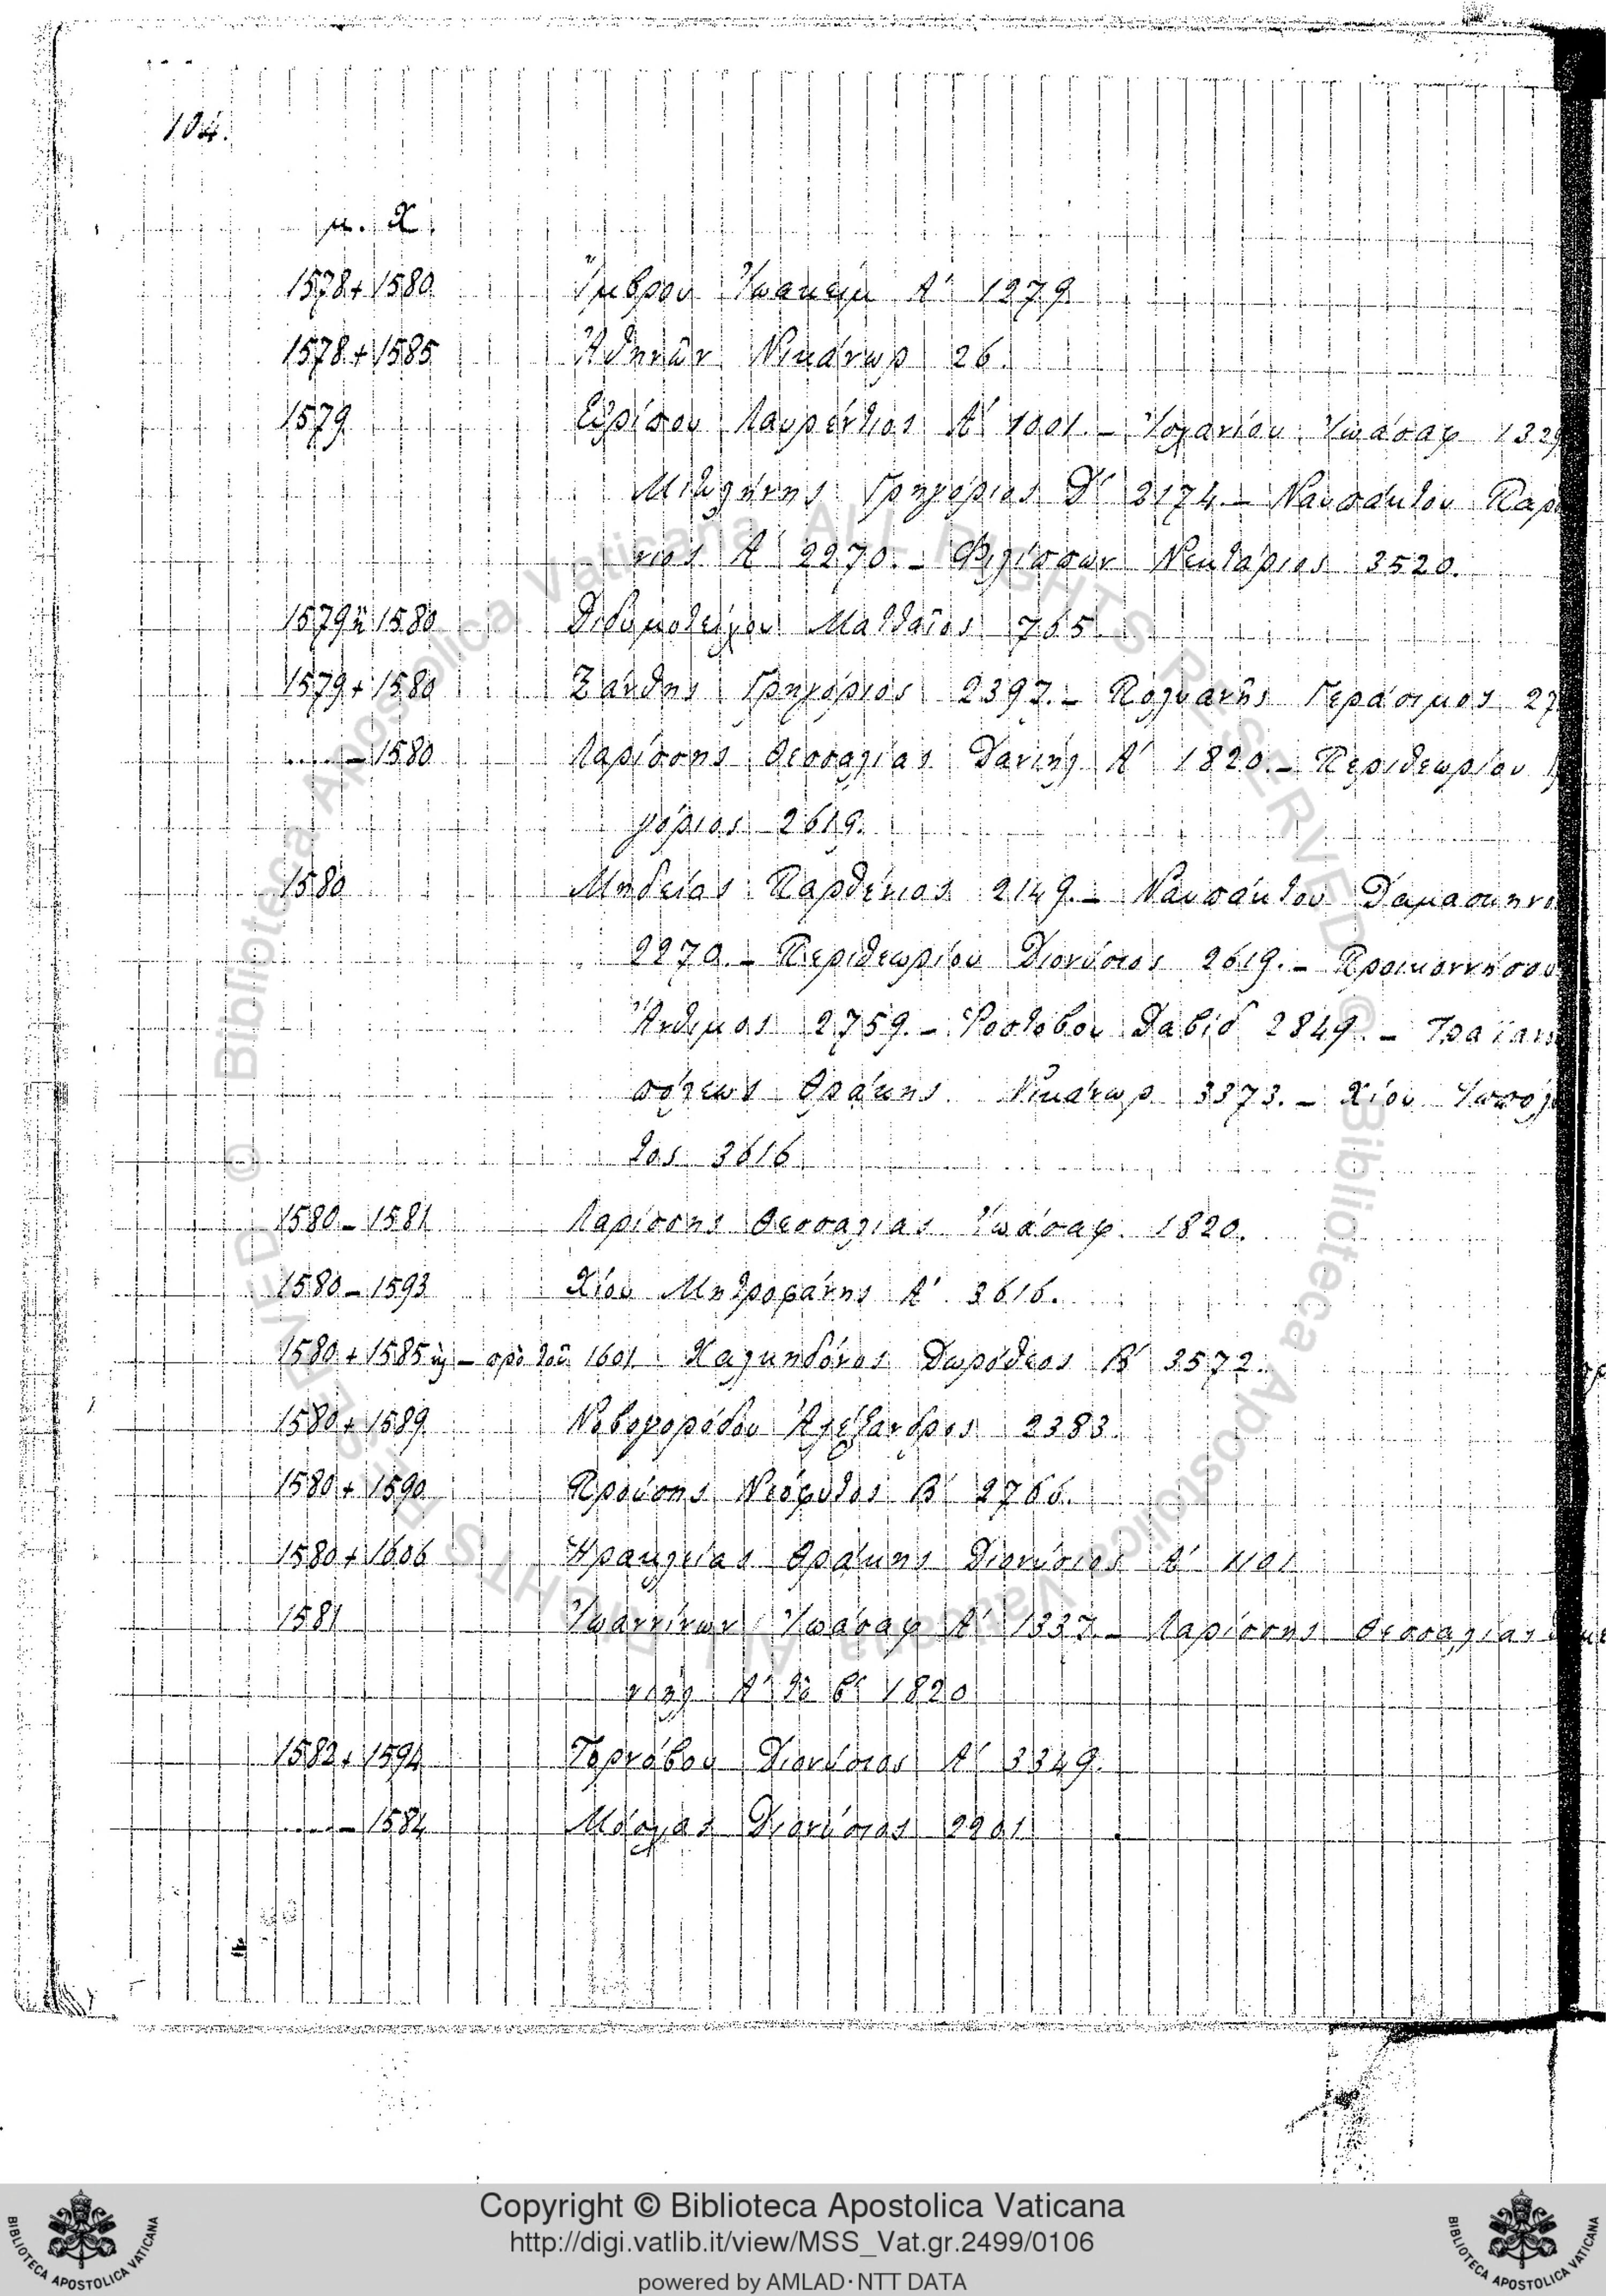 104.
μ. Χ.
1578+1580 Ἴμβρου Ἰωακεὶμ Α΄ 1279
1578+1585 Ἀθηνῶν Νικάνωρ 26.
1579 Εὐρίπου Λαυρέντιος Α΄ 1001.– Ἰωάσαφ 1329
Μιθύμνης Γρηγόριος Δ΄ 2174.– Ναυπάκτου Παρθ
νιος Α΄ 2270.– Φιλίππων Νεκτάριος 3520.
1579 ἢ 1580 Διδυμοτείχου Ματθαῖος 765.
1579+1580 Ξάνθης Γρηγόριος 2397.– Πολυανῆς Γεράσιμος 27
....–1580 Λαρίσσης Θεσσαλίας Δανιὴλ Α΄ 1820.– Περιθεωρίου
γόριος 2619.
1580 Μηδείας Παρθένιος 2149.– Ναυπάκτου Δαμασκηνὸ
2270.– Περιθεωρίου Διονύσιος 2619.– Προικοννήσου
Ἄνθιμος 2759.– Ροστοβου Δαβὶδ 2849.– Τραϊαν
πόλεως Θράκης Νικάνωρ 3373.– Χίου Ἱππόλ
τος 3616
1580–1581 Λαρίσσης Θεσσαλίας Ἰωάσαφ 1820.
1580–1593 Χίου Μητροφάνης Α΄ 3616.
1580+1585 – πρὸ τοῦ 1601 Χαλκηδόνος Δωρόθεος Β΄ 3572.
1580+1589 Νοβογορόδου Ἀλέξανδρος 2383.
1580+1590 Προύσης Νεόφυτος Β΄ 2766.
1580+1606 Ἡρακλείας Θράκης Διονύσιος Α΄ 1101
1581 Ἰωαννίνων Ἰωάσαφ Α΄ 1337.– Λαρίσσης Θεσσαλίας
νιὴλ Α΄ τὸ β΄ 1820
1582+1594 Τορνόβου Διονύσιος Α΄ 3349.
....–1584 Μόσχας Διονύσιος 2201
© Biblioteca Apostolica Vaticana ALL RIGHTS RESERVED © Biblioteca Apostolica Vaticana ALL RIGHTS RESERVED
Copyright © Biblioteca Apostolica Vaticana
http://digi.vatlib.it/view/MSS_Vat.gr.2499/0106
powered by AMLAD·NTT DATA
BIBLIOTECA APOSTOLICA VATICANA
BIBLIOTECA APOSTOLICA VATICANA